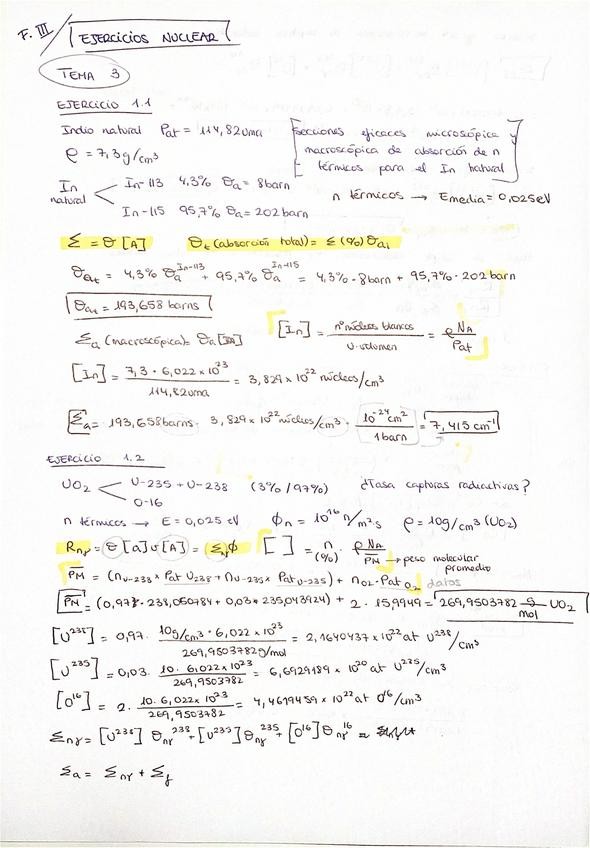 F. III / EJERCICIOS NUCLEAR
TEMA 3
EJERCICIO 1.1
Indio natural Pat = 114,82uma [secciones eficaces microscópica y
macroscópica de absorción de n
térmicos para el In natural]
ρ = 7,3g/cm³
In natural < In-113 4,3% σa = 8barn
n térmicos → Emedia = 0,025eV
In-115 95,7% σa = 202barn
Σ = σ [A] σt (absorción total) = Σ (%) σai
σat = 4,3% σa^In-113 + 95,7% σa^In-115 = 4,3% · 8barn + 95,7% · 202barn
σat = 193,658 barns
Σa (macroscópica) = σa [In] [In] = nº núcleos blancos / u. volumen = ρ NA / Pat
[In] = 7,3 · 6,022 x 10²³ / 114,82uma = 3,829 x 10²² núcleos/cm³
Σa = 193,658barns · 3,829 x 10²² núcleos/cm³ · 10⁻²⁴cm² / 1barn = 7,415 cm⁻¹
EJERCICIO 1.2
UO₂ < U-235 + U-238 (3% / 97%) ¿Tasa capturas radiactivas?
O-16
n térmicos → E = 0,025 eV ϕn = 10¹⁶ n/m²·s ρ = 10g/cm³ (UO₂)
Rnγ = σ [a] v [A] = Σnγ ϕ [ ] = n (%) · ρ NA / PM → peso molecular promedio
PM = (nU-238 x Pat U238 + nU-235 x Pat U-235) + nO2 · Pat O2 datos
PM = (0,97 · 238,050784 + 0,03 · 235,043924) + 2 · 15,9949 = 269,9503782 g/mol UO₂
[U²³⁸] = 0,97 · 10g/cm³ · 6,022 x 10²³ / 269,9503782g/mol = 2,1640437 x 10²² at U²³⁸/cm³
[U²³⁵] = 0,03 · 10 · 6,022 x 10²³ / 269,9503782 = 6,6929189 x 10²⁰ at U²³⁵/cm³
[O¹⁶] = 2 · 10 · 6,022 x 10²³ / 269,9503782 = 4,4619459 x 10²² at O¹⁶/cm³
Σnγ = [U²³⁸] σnγ²³⁸ + [U²³⁵] σnγ²³⁵ + [O¹⁶] σnγ¹⁶ =
Σa = Σnγ + Σf